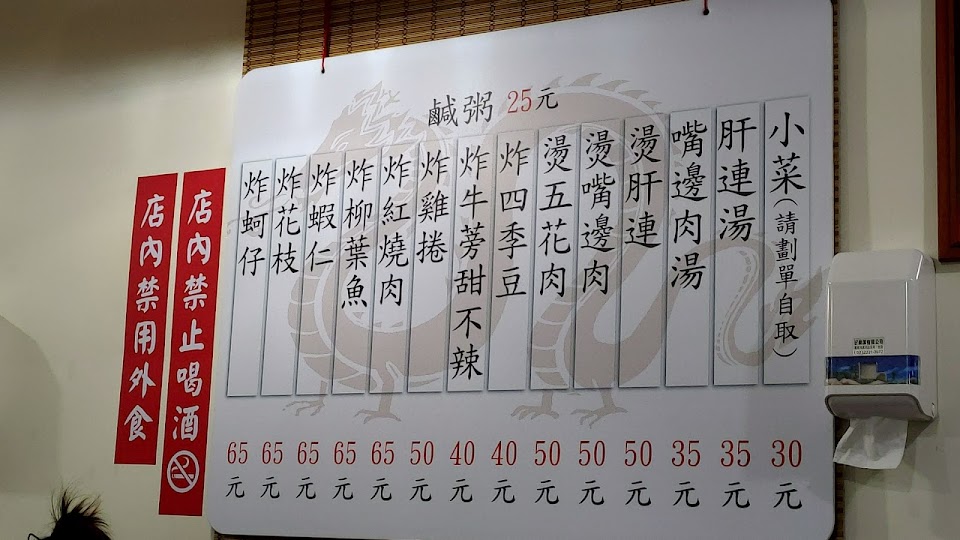 鹹粥 25元
小菜(請劃單自取) 30元
肝連湯 35元
嘴邊肉湯 35元
燙肝連 50元
燙嘴邊肉 50元
燙五花肉 50元
炸四季豆 40元
炸牛蒡甜不辣 40元
炸雞捲 50元
炸紅燒肉 65元
炸柳葉魚 65元
炸蝦仁 65元
炸花枝 65元
炸蚵仔 65元
店內禁止喝酒
店內禁用外食